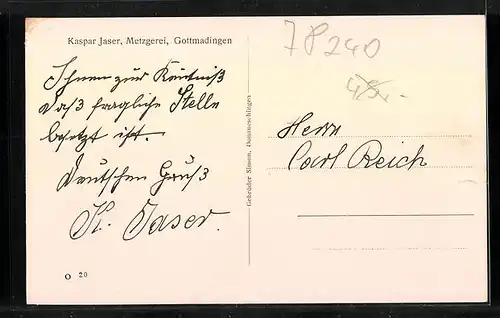 Kaspar Jaser, Metzgerei, Gottmadingen
78240
Ihnen zur Kentniß
daß fragliche Stelle
besetzt ist.
Deutschen Gruß
K. Jaser.
Gebrüder Simon, Donaueschingen
Herrn
Carl Reich
O 20